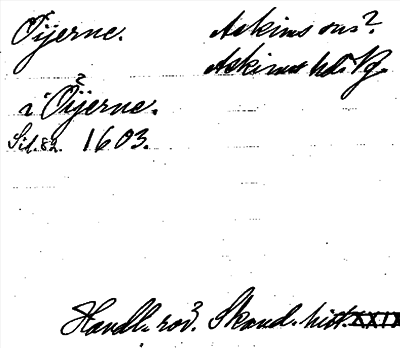 Öijerne. Askims sns?
Askims hd. Vg.
i Öijerne.
Sid. 82. 1603.
Handl. rör. Skand. hist. XXIX